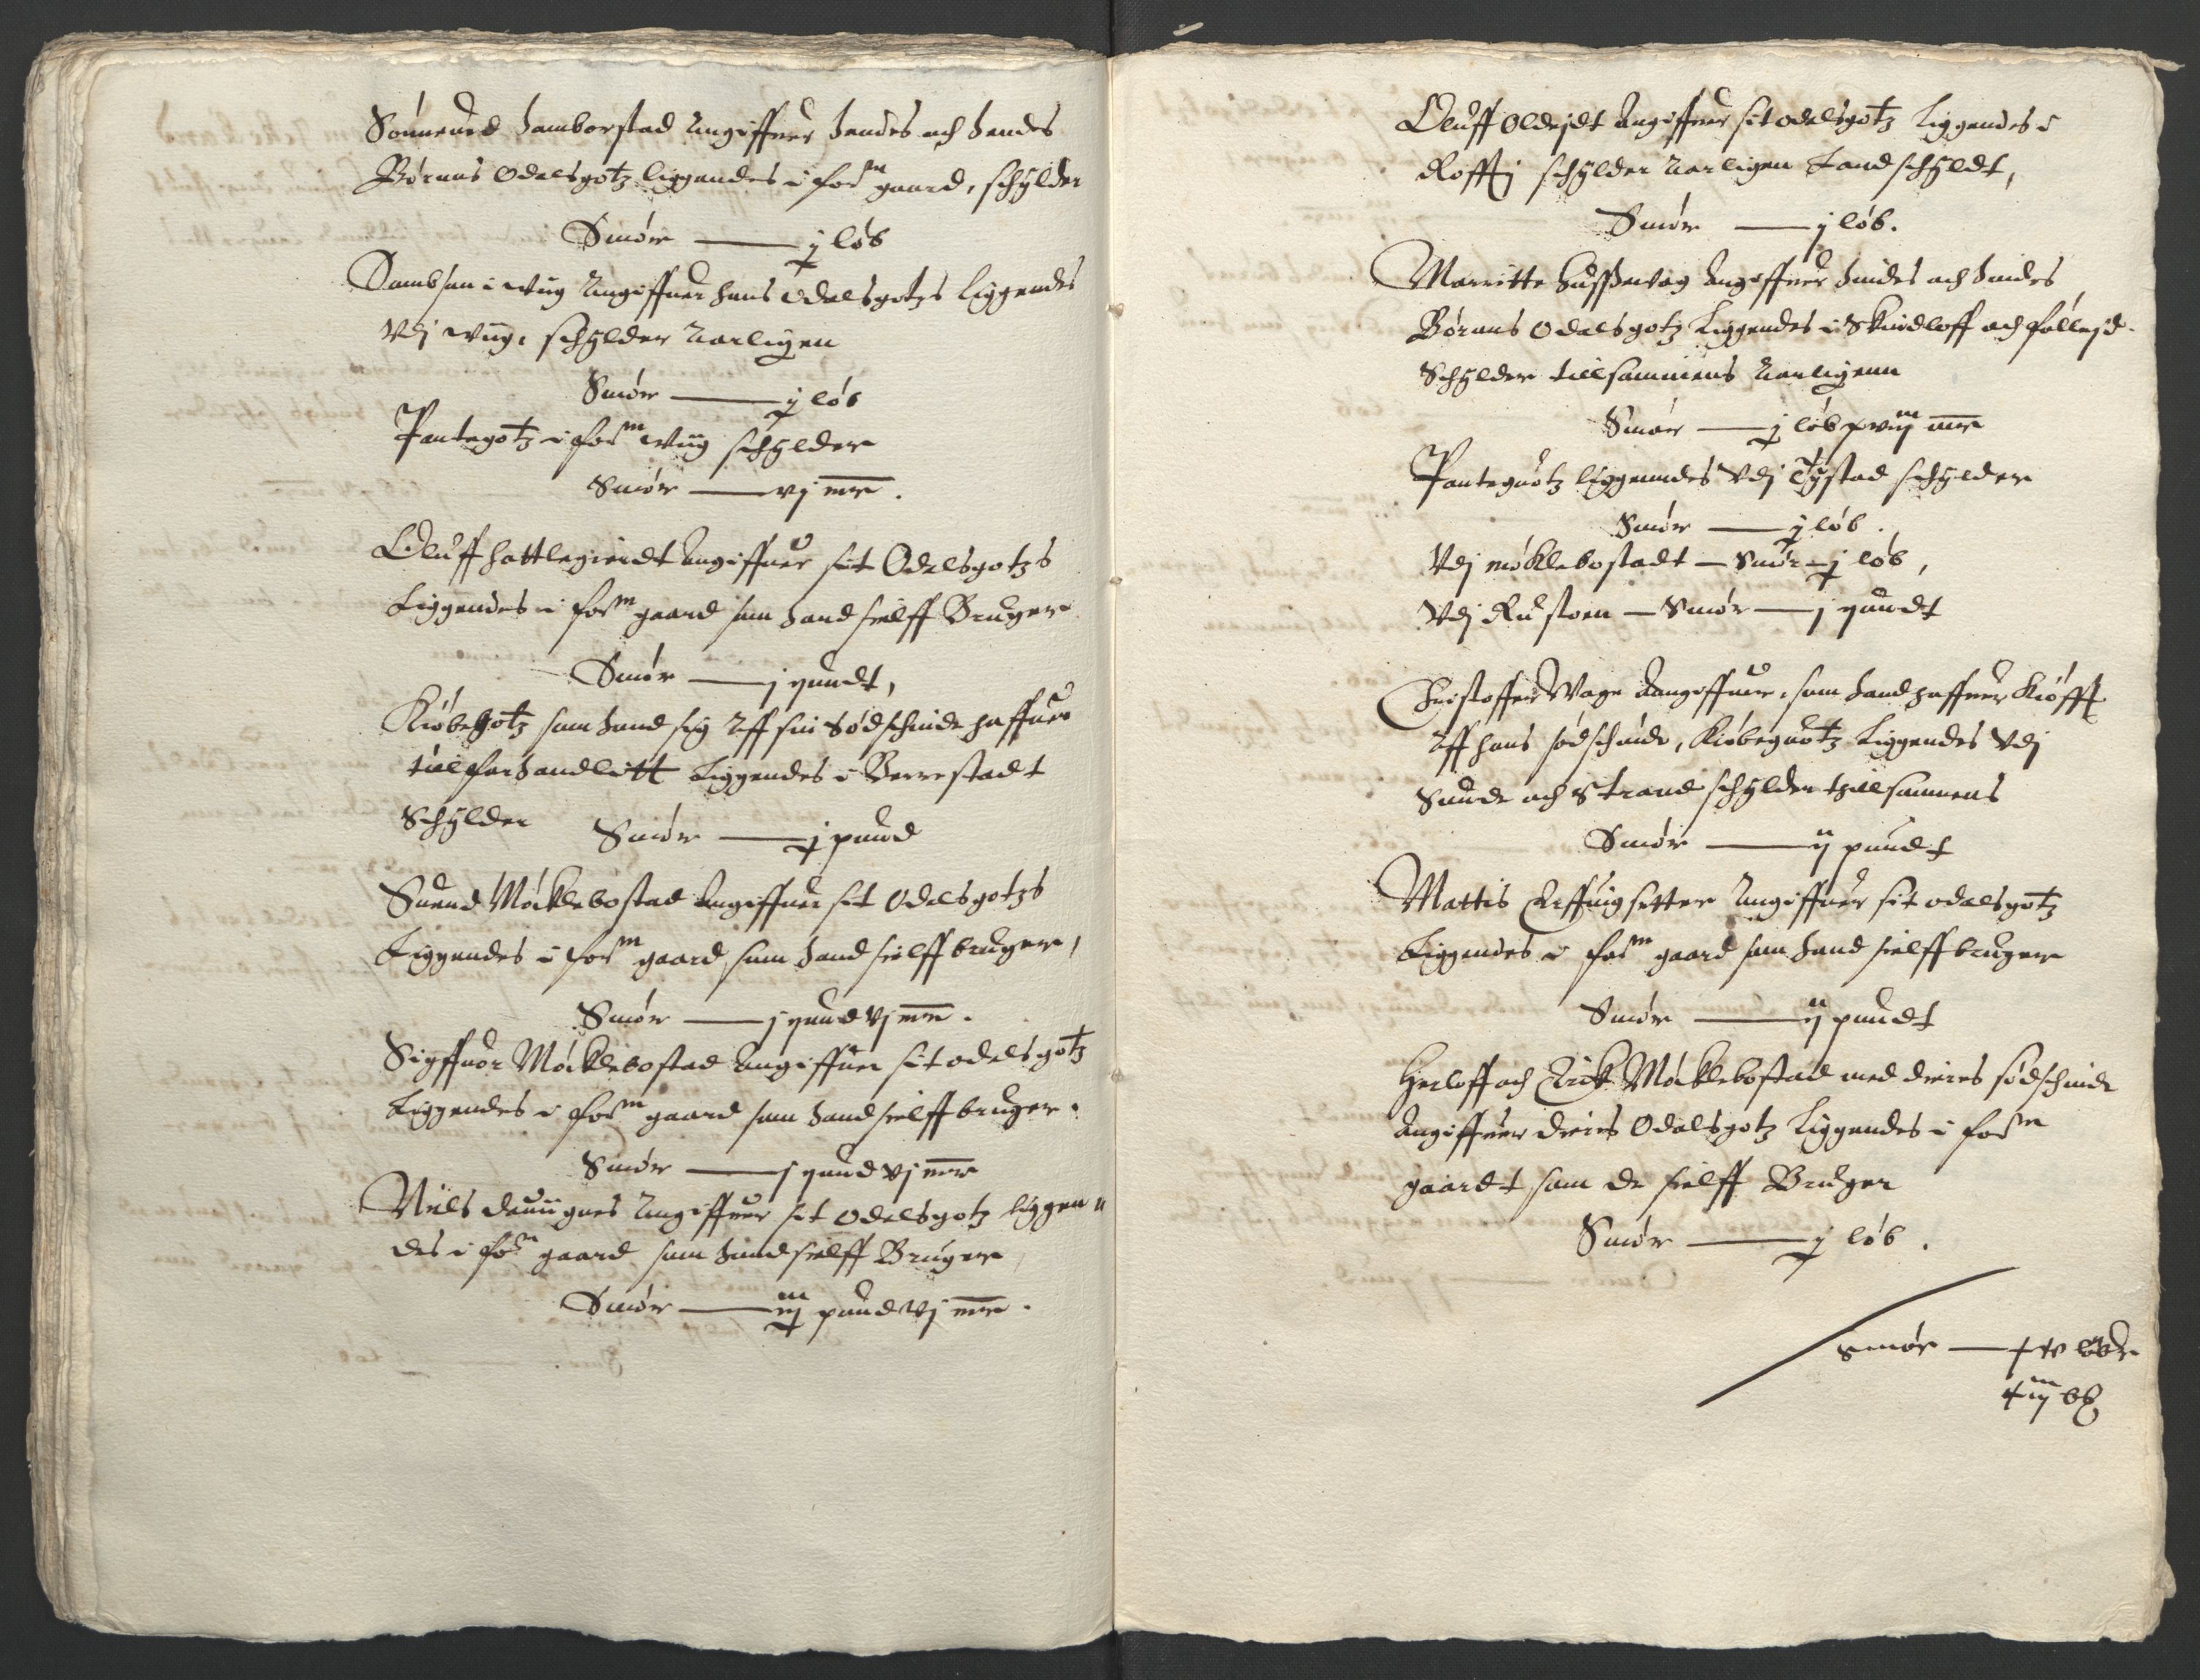 Sønneued Hamborstad Angiffuer hendes och hendes
Børnns Odelsgotz liggendes i forne gaard, schylder
Smør — j løb
i Wiig Angiffuer hans Odelsgotz liggendes
Vdj Wiig, schylder Aarligen
Smør — j løb
Pantegotz i forne Wiig schylder
Smør — vj mrk.
Oluff Hattlegierdt Angiffuer sit Odelsgotz
Liggendes i forne gaard som hand sielff Bruger
Smør — j pundt,
Kiøbegotz som hand sig Aff sin Sødschinde haffuer
till forhandlitt Liggendes i Berrestadt
Schylder Smør — j pund
Suend Møcklebostad Angiffuer sit Odelsgotz
Liggendes i forne gaard som hand sielff bruger,
Smør — j pund vj mrk.
Siffuer Møcklebostad Angiffuer sit odelsgotz
Liggendes i forne gaard som hand sielff bruger.
Smør — j pund vj mrk
Niels Angiffuer sit odelsgotz liggen
des i forne gaard som hand sielff Bruger
Smør — iij pund vj mrk.
Oluff Oldejdt Angiffuer sit odelsgotz Liggendes i
schylder Aarligen Landschyldt,
Smør — j løb.
Marritte Hussevog Angiffuer hindes och hindes
Børnns Odelsgotz Liggendes i Skuidloff och Follejd
Schylder tillsammens Aarligenn
Smør — j løb xviij mrk
Panteguotz liggenndes Vdj Tystad schylder
Smør — j løb.
Vdj Møcklebostadt — Smør — j løb,
Vdj Rustoen — Smør — j pundt
Christoffer Wage Angiffuer, som hand haffuer Kiøfft
Aff hans sødschinde, Kiøbeguotz Liggendes Vdj
Sunde och Strand schylder thilsammens
Smør — ij pundt
Mattis Erffuigsetter Angiffuer sit odelsgotz
Liggendes i forne gaard som hand sielff bruger
Smør — ij pundt
Herloff och Erick Møcklebostad med dieris sødschinde
Angiffuer dieris Odelsgotz Liggendes i forne
gaardt som de sielff Bruger
Smør — j løb.
Smør —